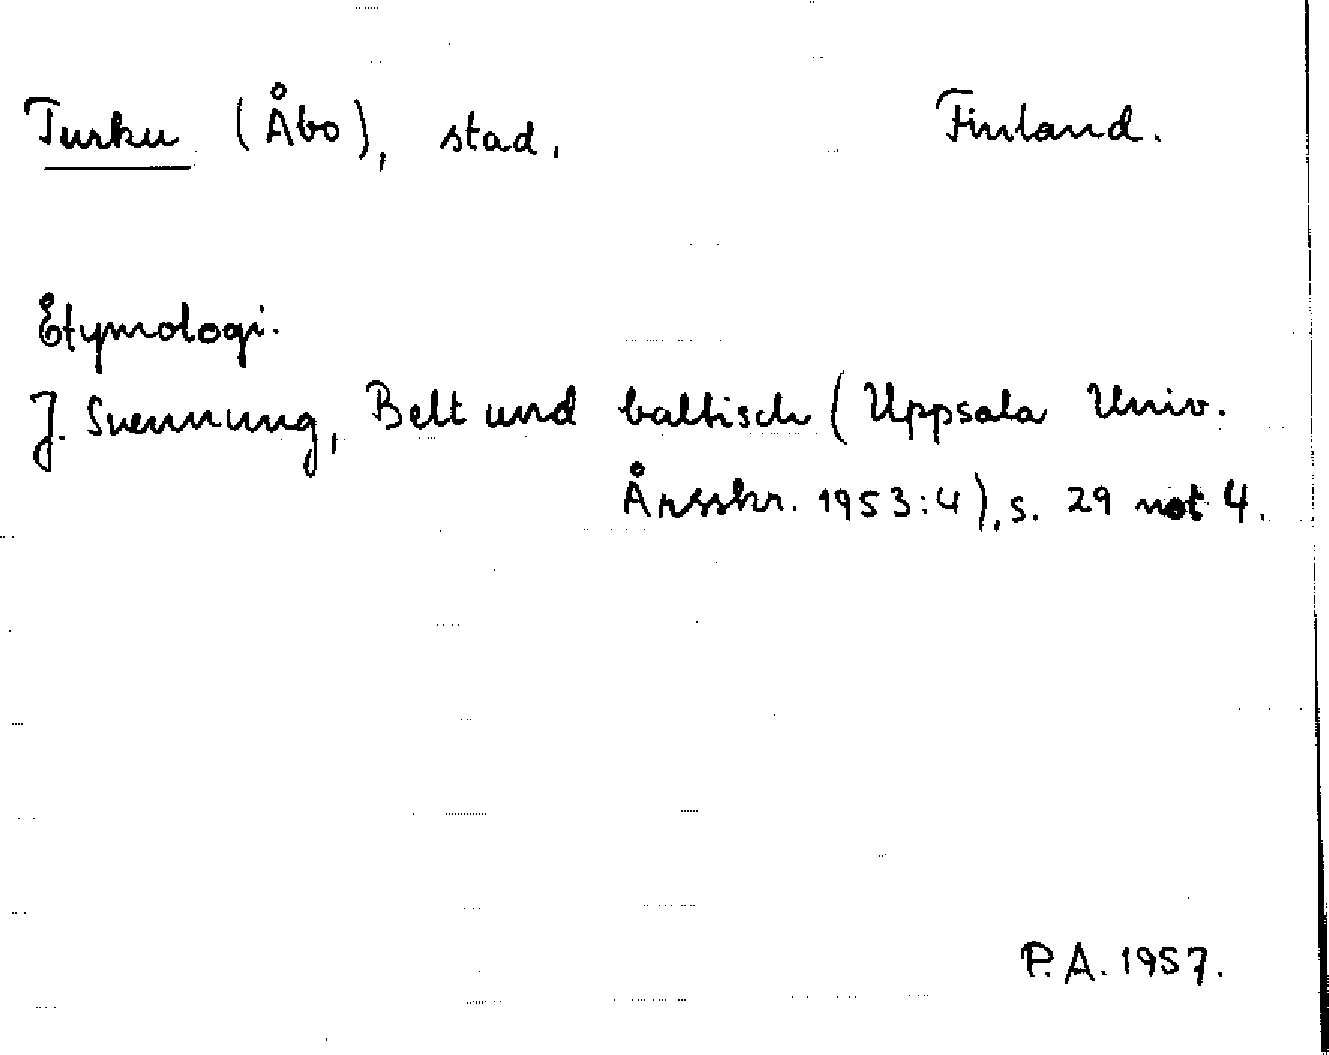 Turku (Åbo), stad. Finland.
Etymologi.
J. Svennung, Belt und baltisch (Uppsala Univ.
Årsskr. 1953:4), s. 29 not 4.
P.A. 1957.